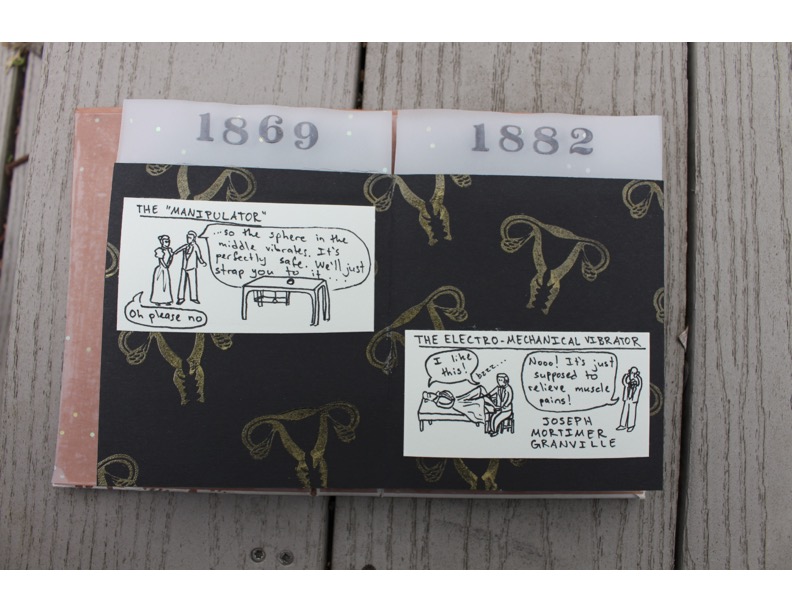 1869
THE "MANIPULATOR"
...so the sphere in the
middle vibrates. It's
perfectly safe. We'll just
strap you to it...
Oh please no
1882
THE ELECTRO-MECHANICAL VIBRATOR
I like
this!
bzzz...
Nooo! It's just
supposed to
relieve muscle
pains!
JOSEPH
MORTIMER
GRANVILLE